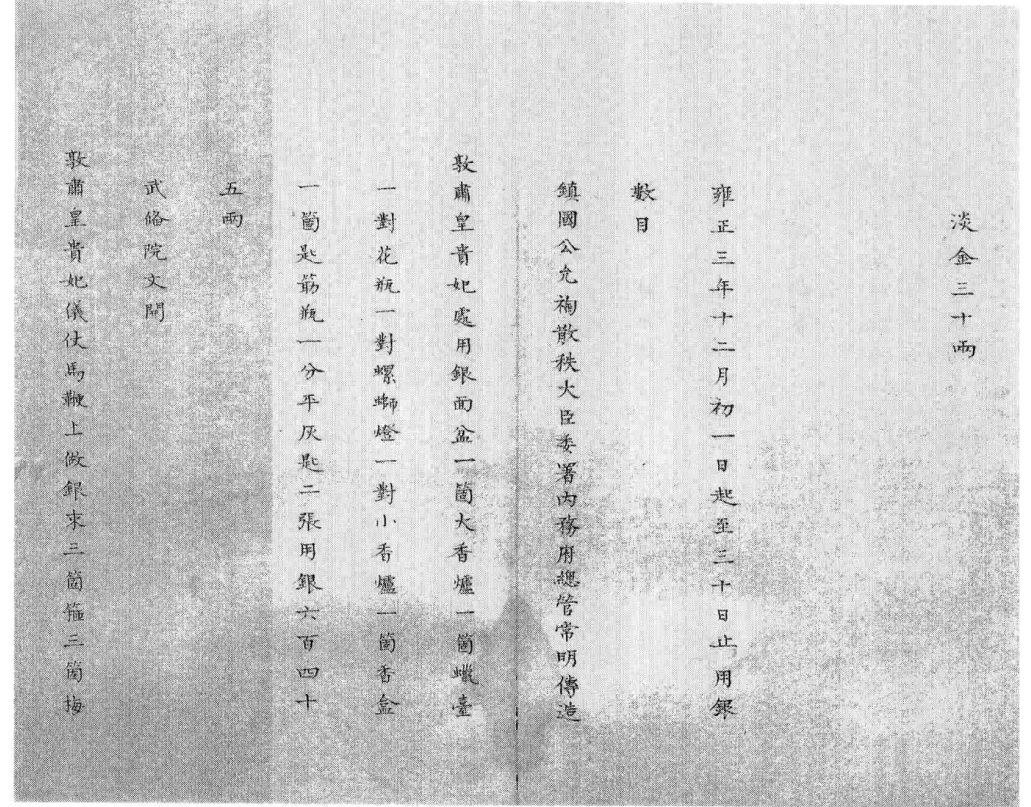 淡金三十兩
雍正三年十二月初一日起至三十日止用銀
數目
鎮國公允祹散秩大臣委署內務府總管常明傳造
敦肅皇貴妃處用銀面盆一箇大香爐一箇蠟臺
一對花瓶一對螺螄燈一對小香爐一箇香盒
一箇匙筯瓶一分平灰匙二張用銀六百四十
五兩
武俻院文開
敦肅皇貴妃儀仗馬鞭上做銀束三箇箍三箇梅